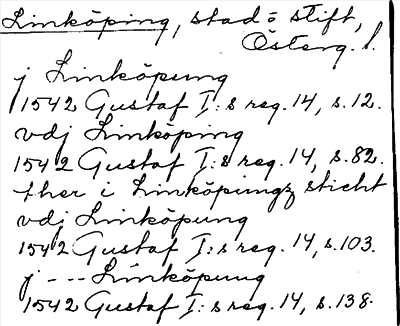 Linköping, stad o stift,
Österg. l.
j Linköpung
1542 Gustaf I:s reg. 14, s. 12.
vdj Linköping
1542 Gustaf I:s reg. 14, s. 82.
ther i Linköpungz sticht
vdj Linköpung
1542 Gustaf I:s reg. 14, s. 103.
j --- Linköpung
1542 Gustaf I:s reg. 14, s. 138.